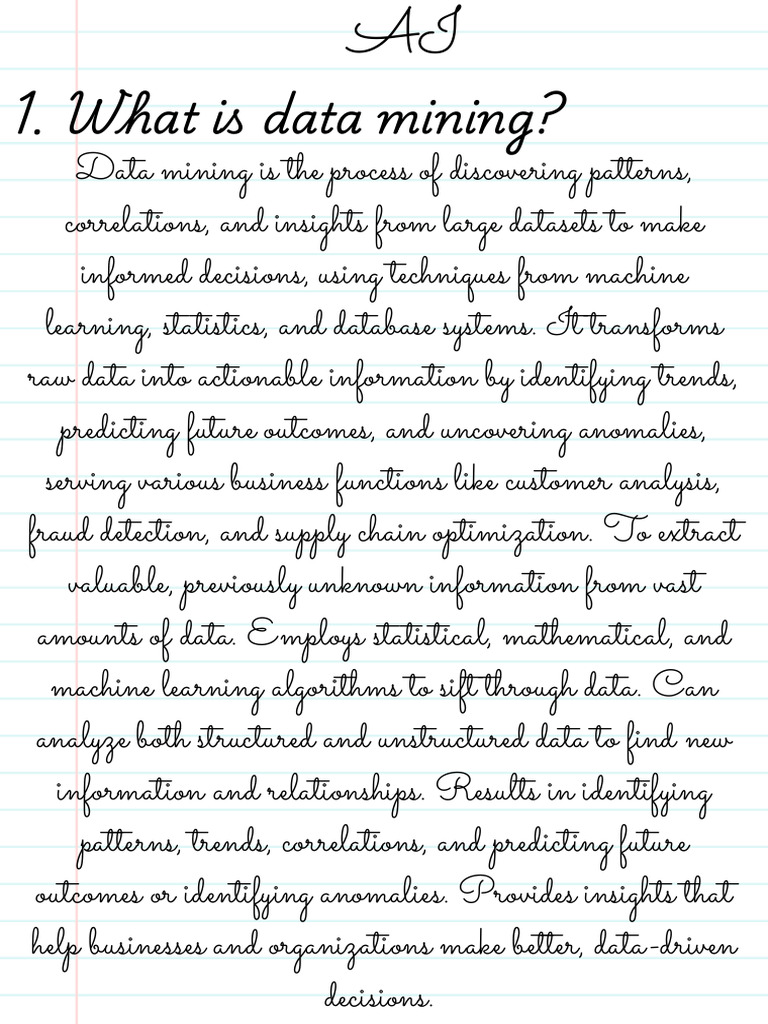 AI
1. What is data mining?
Data mining is the process of discovering patterns,
correlations, and insights from large datasets to make
informed decisions, using techniques from machine
learning, statistics, and database systems. It transforms
raw data into actionable information by identifying trends,
predicting future outcomes, and uncovering anomalies,
serving various business functions like customer analysis,
fraud detection, and supply chain optimization. To extract
valuable, previously unknown information from vast
amounts of data. Employs statistical, mathematical, and
machine learning algorithms to sift through data. Can
analyze both structured and unstructured data to find new
information and relationships. Results in identifying
patterns, trends, correlations, and predicting future
outcomes or identifying anomalies. Provides insights that
help businesses and organizations make better, data-driven
decisions.